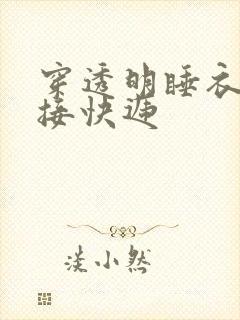 穿透明睡衣
接快递
淡小然